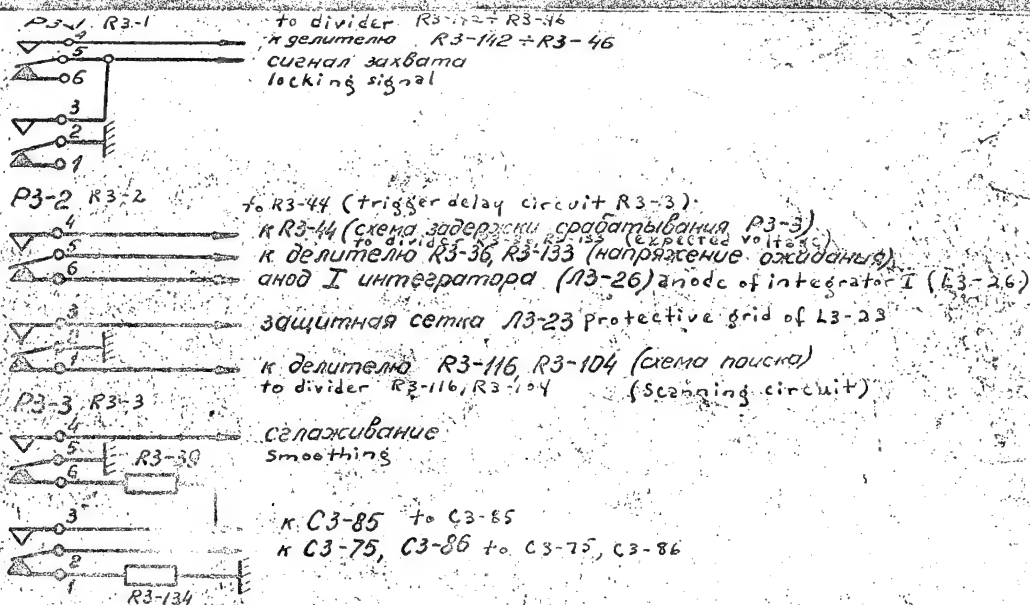 P3-1 R3-1
to divider R3-142 ÷ R3-46
4
к делителю R3-142 ÷ R3-46
5
сигнал захвата
6
locking signal
3
2
1
P3-2 R3-2
to R3-44 (trigger delay circuit R3-3)
4
к R3-44 (схема задержки срабатывания P3-3)
to divider R3-133 (expected voltage)
5
к делителю R3-36, R3-133 (напряжение ожидания)
6
анод I интегратора (Л3-26) anode of integrator I (L3-26)
3
защитная сетка Л3-23 protective grid of L3-23
2
1
к делителю R3-116, R3-104 (схема поиска)
to divider R3-116, R3-104 (Scanning circuit)
P3-3 R3-3
4
сглаживание
5
smoothing
R3-39
6
3
к C3-85 to C3-85
к C3-75, C3-86 to C3-75, C3-86
2
1
R3-134